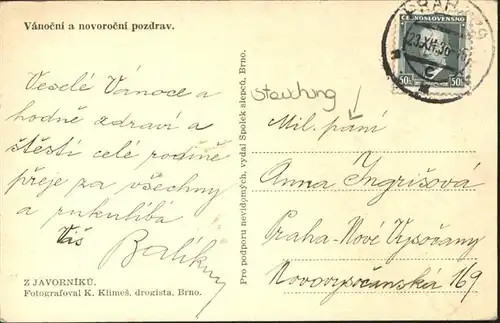 Vánoční a novoroční pozdrav.
Veselé Vánoce a
hodně zdraví a
štěstí celé rodině
přeje za všechny
a rukulíbá
Váš
Z JAVORNÍKŮ.
Fotografoval K. Klimeš, drogista, Brno.
Pro podporu nevidomých, vydal Spolek slepců, Brno.
PRAHA
23.XII.36
ČESKOSLOVENSKO
50h
50h
Mil. paní
Anna Ingrišová
Praha-Nové Vysočany
Novovysočanská 169